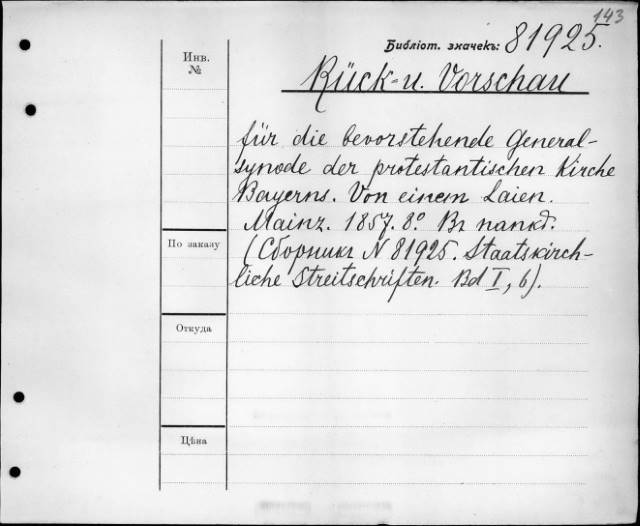 143
Библіот. значекъ: 81925.
Инв.
№
Rück- u. Vorschau
für die bevorstehende General-
synode der protestantischen Kirche
Bayerns. Von einem Laien.
Mainz. 1857. 8°. Въ папкѣ.
По заказу
(Сборникъ N 81925. Staatskirch-
liche Streitschriften. Bd I, 6).
Откуда
Цѣна